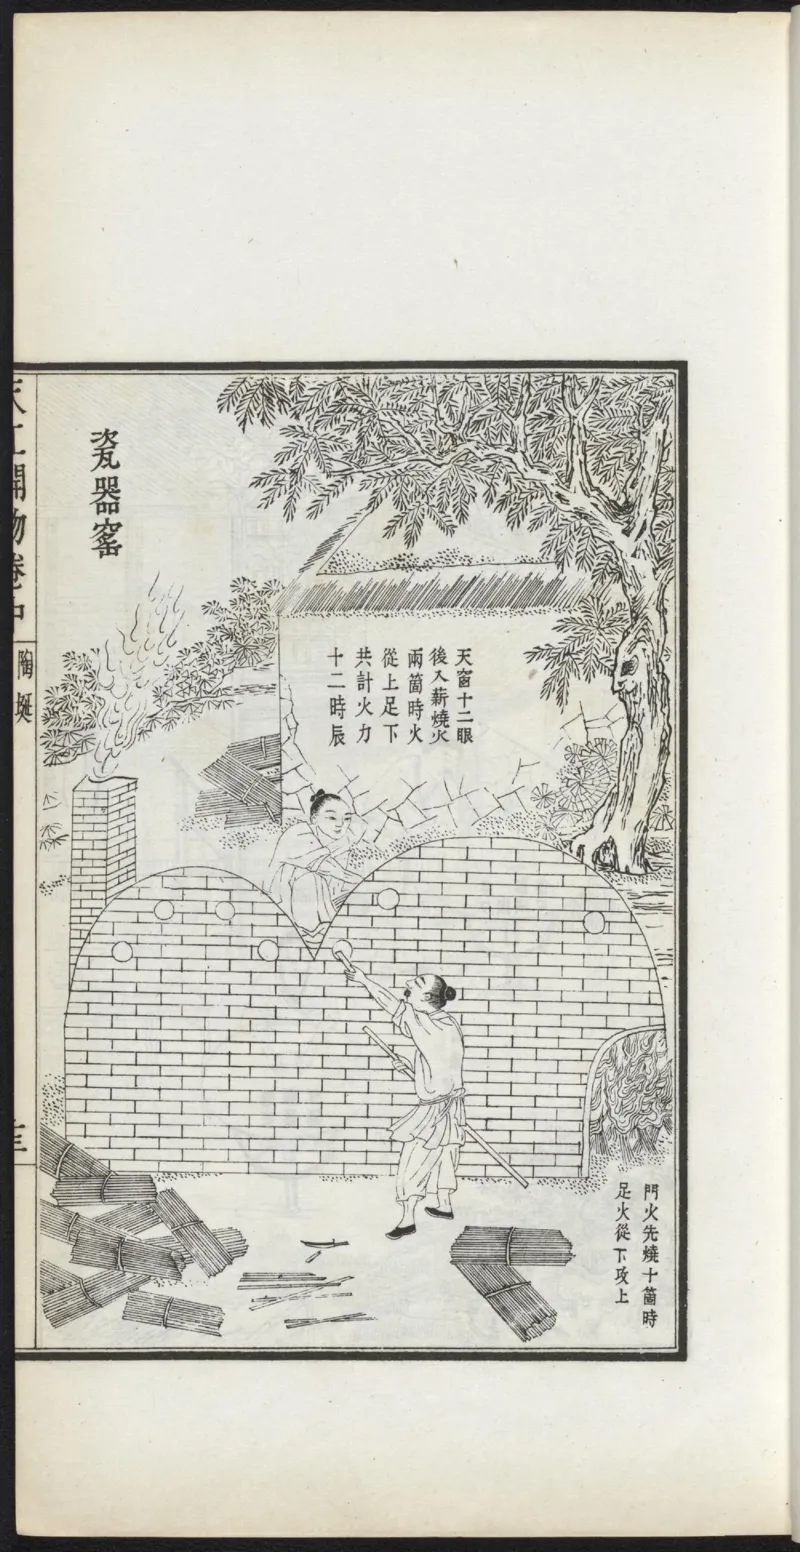 瓷器窰
天窗十二眼
後入薪燒火
兩箇時火
從上足下
共計火力
十二時辰
門火先燒十箇時
足火從下攻上
天工開物卷中
陶埏